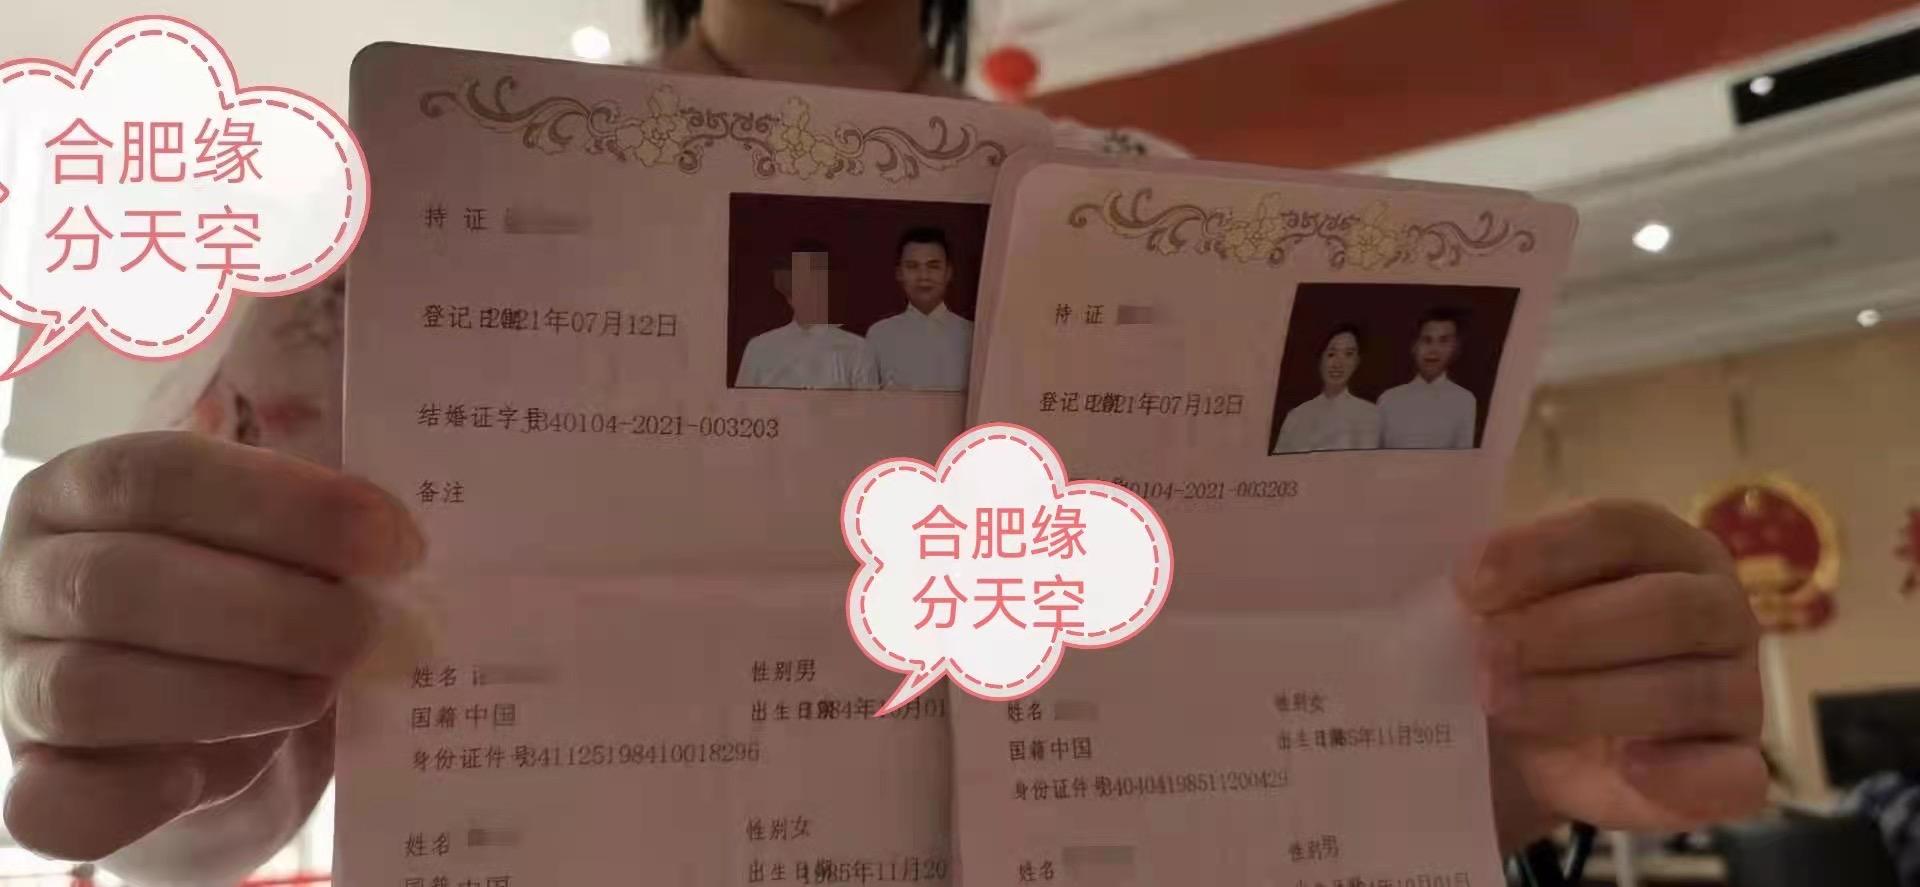 合肥缘
分天空
持 证
登记日期2021年07月12日
结婚证字号J340104-2021-003203
备注
姓名
性别男
国籍中国
出生日期1984年10月01
身份证件号341125198410018296
姓名
性别女
国籍中国
出生日期1985年11月20
持 证
登记日期2021年07月12日
0104-2021-003203
合肥缘
分天空
姓名
性别女
国籍中国
出生日期1985年11月20日
身份证件号340404198511200429
姓名
性别男